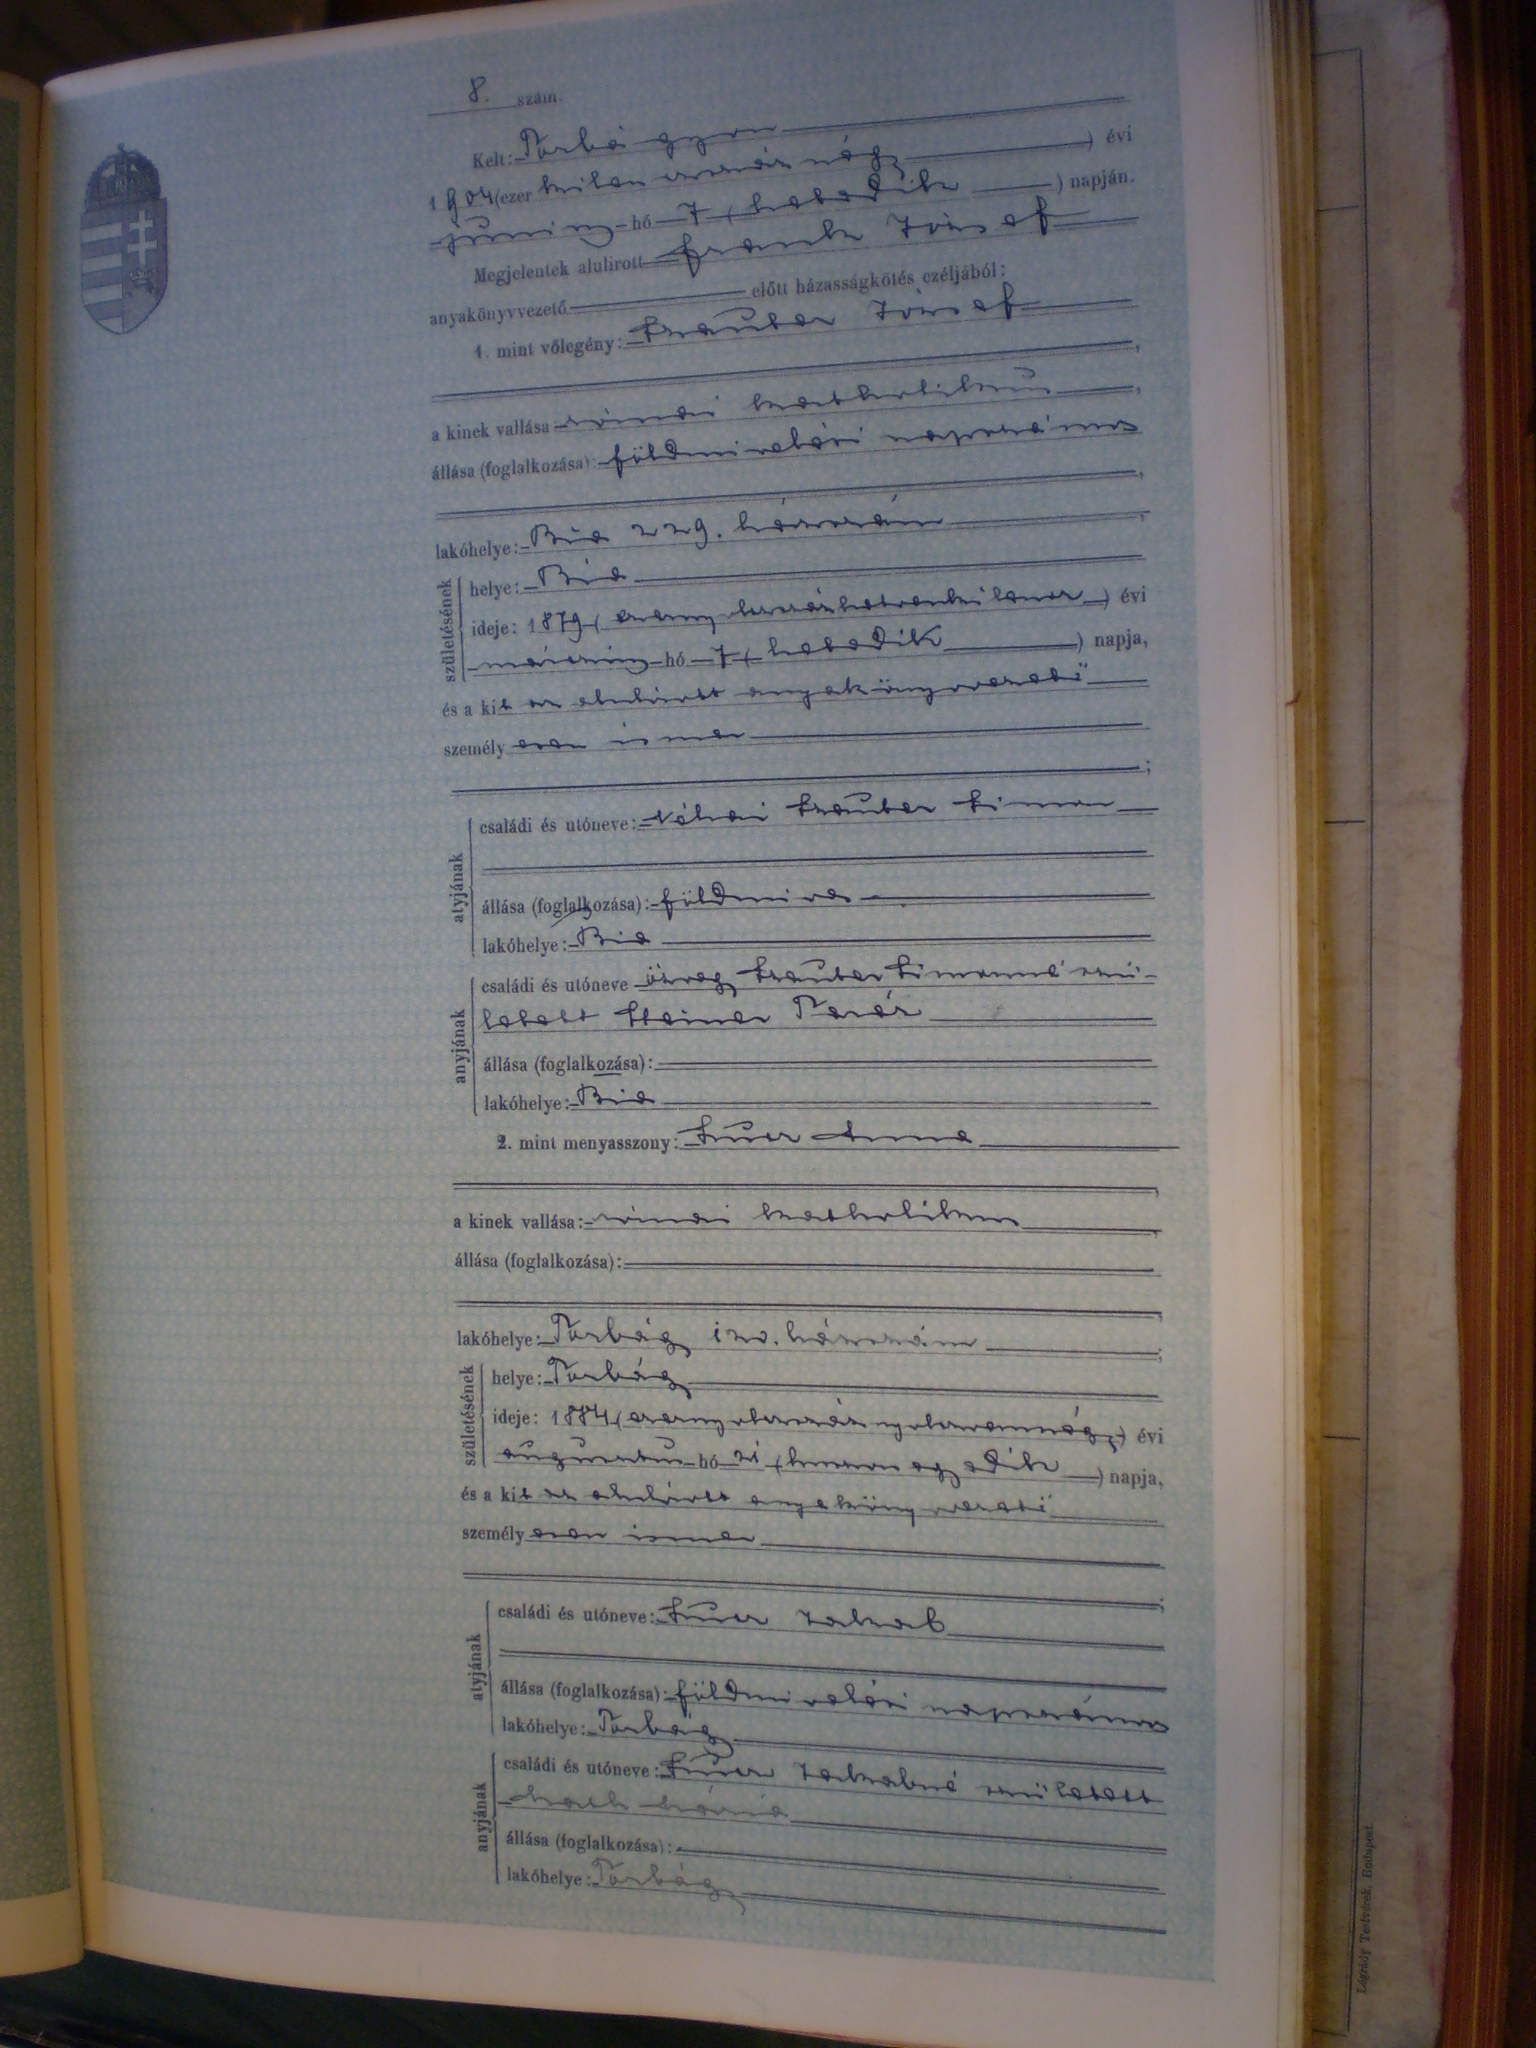 8. szám.
Kelt: Torbágyon
1904 (ezer kilenczszáznégy) évi
junius hó 7 (hetedik) napján.
Megjelentek alulirott Frank József
anyakönyvvezető előtt házasságkötés czéljából:
1. mint vőlegény: József
a kinek vallása római katholikus,
állása (foglalkozása): földmivelési napszámos,
lakóhelye: Bia 229. házszám,
születésének
helye: Bia
ideje: 1879 (ezernyolczszázhetvenkilencz) évi
márczius hó 7 (hetedik) napja,
és a kit az alulirott anyakönyvvezető
személyesen ismer;
atyjának
családi és utóneve: Néhai Simon
állása (foglalkozása): földmives
lakóhelye: Bia
anyjának
családi és utóneve özvegy Simonné szü-
letett Steiner Teréz
állása (foglalkozása):
lakóhelye: Bia
2. mint menyasszony: Anna,
a kinek vallása: római katholikus,
állása (foglalkozása):
lakóhelye: Torbágy 120. házszám;
születésének
helye: Torbágy
ideje: 1884 (ezernyolczszáznyolczvannégy) évi
augusztus hó 21 (huszonegyedik) napja,
és a kit az alulirott anyakönyvvezető
személyesen ismer;
atyjának
családi és utóneve: Jakab
állása (foglalkozása): földmivelési napszámos
lakóhelye: Torbágy
anyjának
családi és utóneve: Jakabné született
Mária
állása (foglalkozása):
lakóhelye: Torbágy
Légrády Testvérek, Budapest.